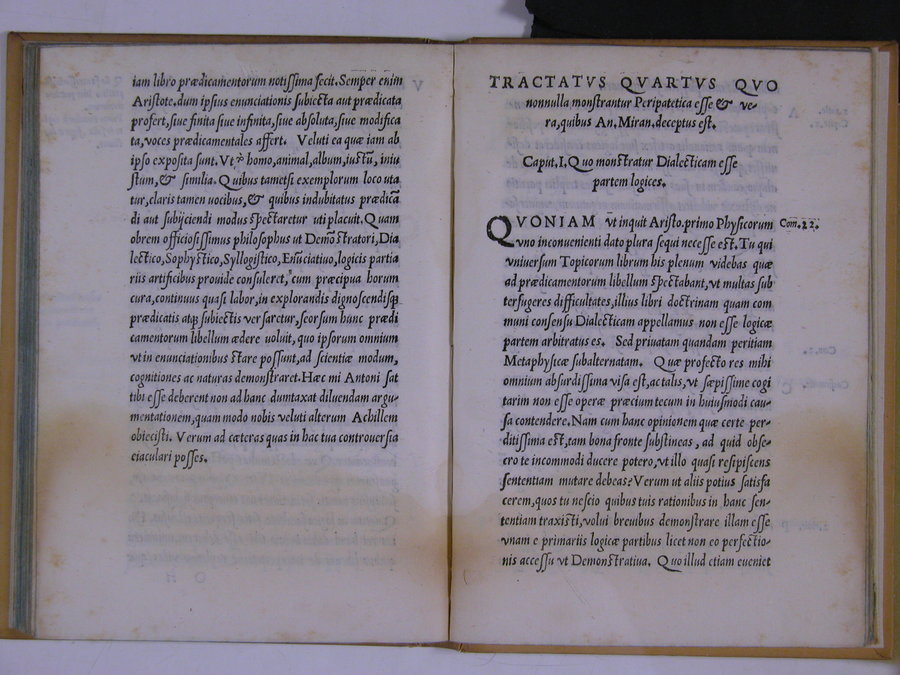 iam libro prædicamentorum notissima fecit. Semper enim
Aristote. dum ipsius enunciationis subiecta aut prædicata
profert, siue finita siue infinita, siue absoluta, siue modifica
ta, voces prædicamentales affert. Veluti ea quæ iam ab
ipso exposita sunt. Vt homo, animal, album, iustū, iniu
stum, & similia. Quibus tametsi exemplorum loco uta
tur, claris tamen uocibus, & quibus indubitatus prædicā
di aut subijciendi modus spectaretur uti placuit. Quam
obrem officiosissimus philosophus ut Demōstratori, Dia
lectico, Sophystico, Syllogistico, Enūciatiuo, logicis partia
riis artificibus prouide consuleret, cum præcipua horum
cura, continuus quasi labor, in explorandis dignoscendisq́;
prædicatis atq; subiectis versaretur, seorsum hunc prædi
camentorum libellum ædere uoluit, quo ipsorum omnium
vt in enunciationibus stare possunt, ad scientiæ modum,
cognitiones ac naturas demonstraret. Hæc mi Antoni sat
tibi esse deberent non ad hanc dumtaxat diluendam argu-
mentationem, quam modo nobis veluti alterum Achillem
obiecisti. Verum ad cæteras quas in hac tua controuersia
eiaculari posses.
TRACTATVS QVARTVS QVO
nonnulla monstrantur Peripatetica esse & ve-
ra, quibus An. Miran. deceptus est.
Caput. I. Quo monstratur Dialecticam esse
partem logices.
QVONIAM vt inquit Aristo. primo Physicorum
Com. 22.
vno inconuenienti dato plura sequi necesse est. Tu qui
vniuersum Topicorum librum his plenum videbas quæ
ad prædicamentorum libellum spectabant, vt multas sub
terfugeres difficultates, illius libri doctrinam quam com
muni consensu Dialecticam appellamus non esse logicæ
partem arbitratus es. Sed priuatam quandam peritiam
Metaphysicæ subalternatam. Quæ profecto res mihi
omnium absurdissima visa est, ac talis, vt sæpissime cogi
tarim non esse operæ præcium tecum in huiusmodi cau-
sa contendere. Nam cum hanc opinionem quæ certe per-
ditissima est, tam bona fronte substineas, ad quid obse-
cro te incommodi ducere potero, vt illo quasi resipiscens
sententiam mutare debeas? Verum ut aliis potius satisfa
cerem, quos tu nescio quibus tuis rationibus in hanc sen-
tentiam traxisti, volui breuibus demonstrare illam esse
vnam e primariis logicæ partibus licet non eo perfectio-
nis accessu vt Demonstratiua. Quo illud etiam eueniet